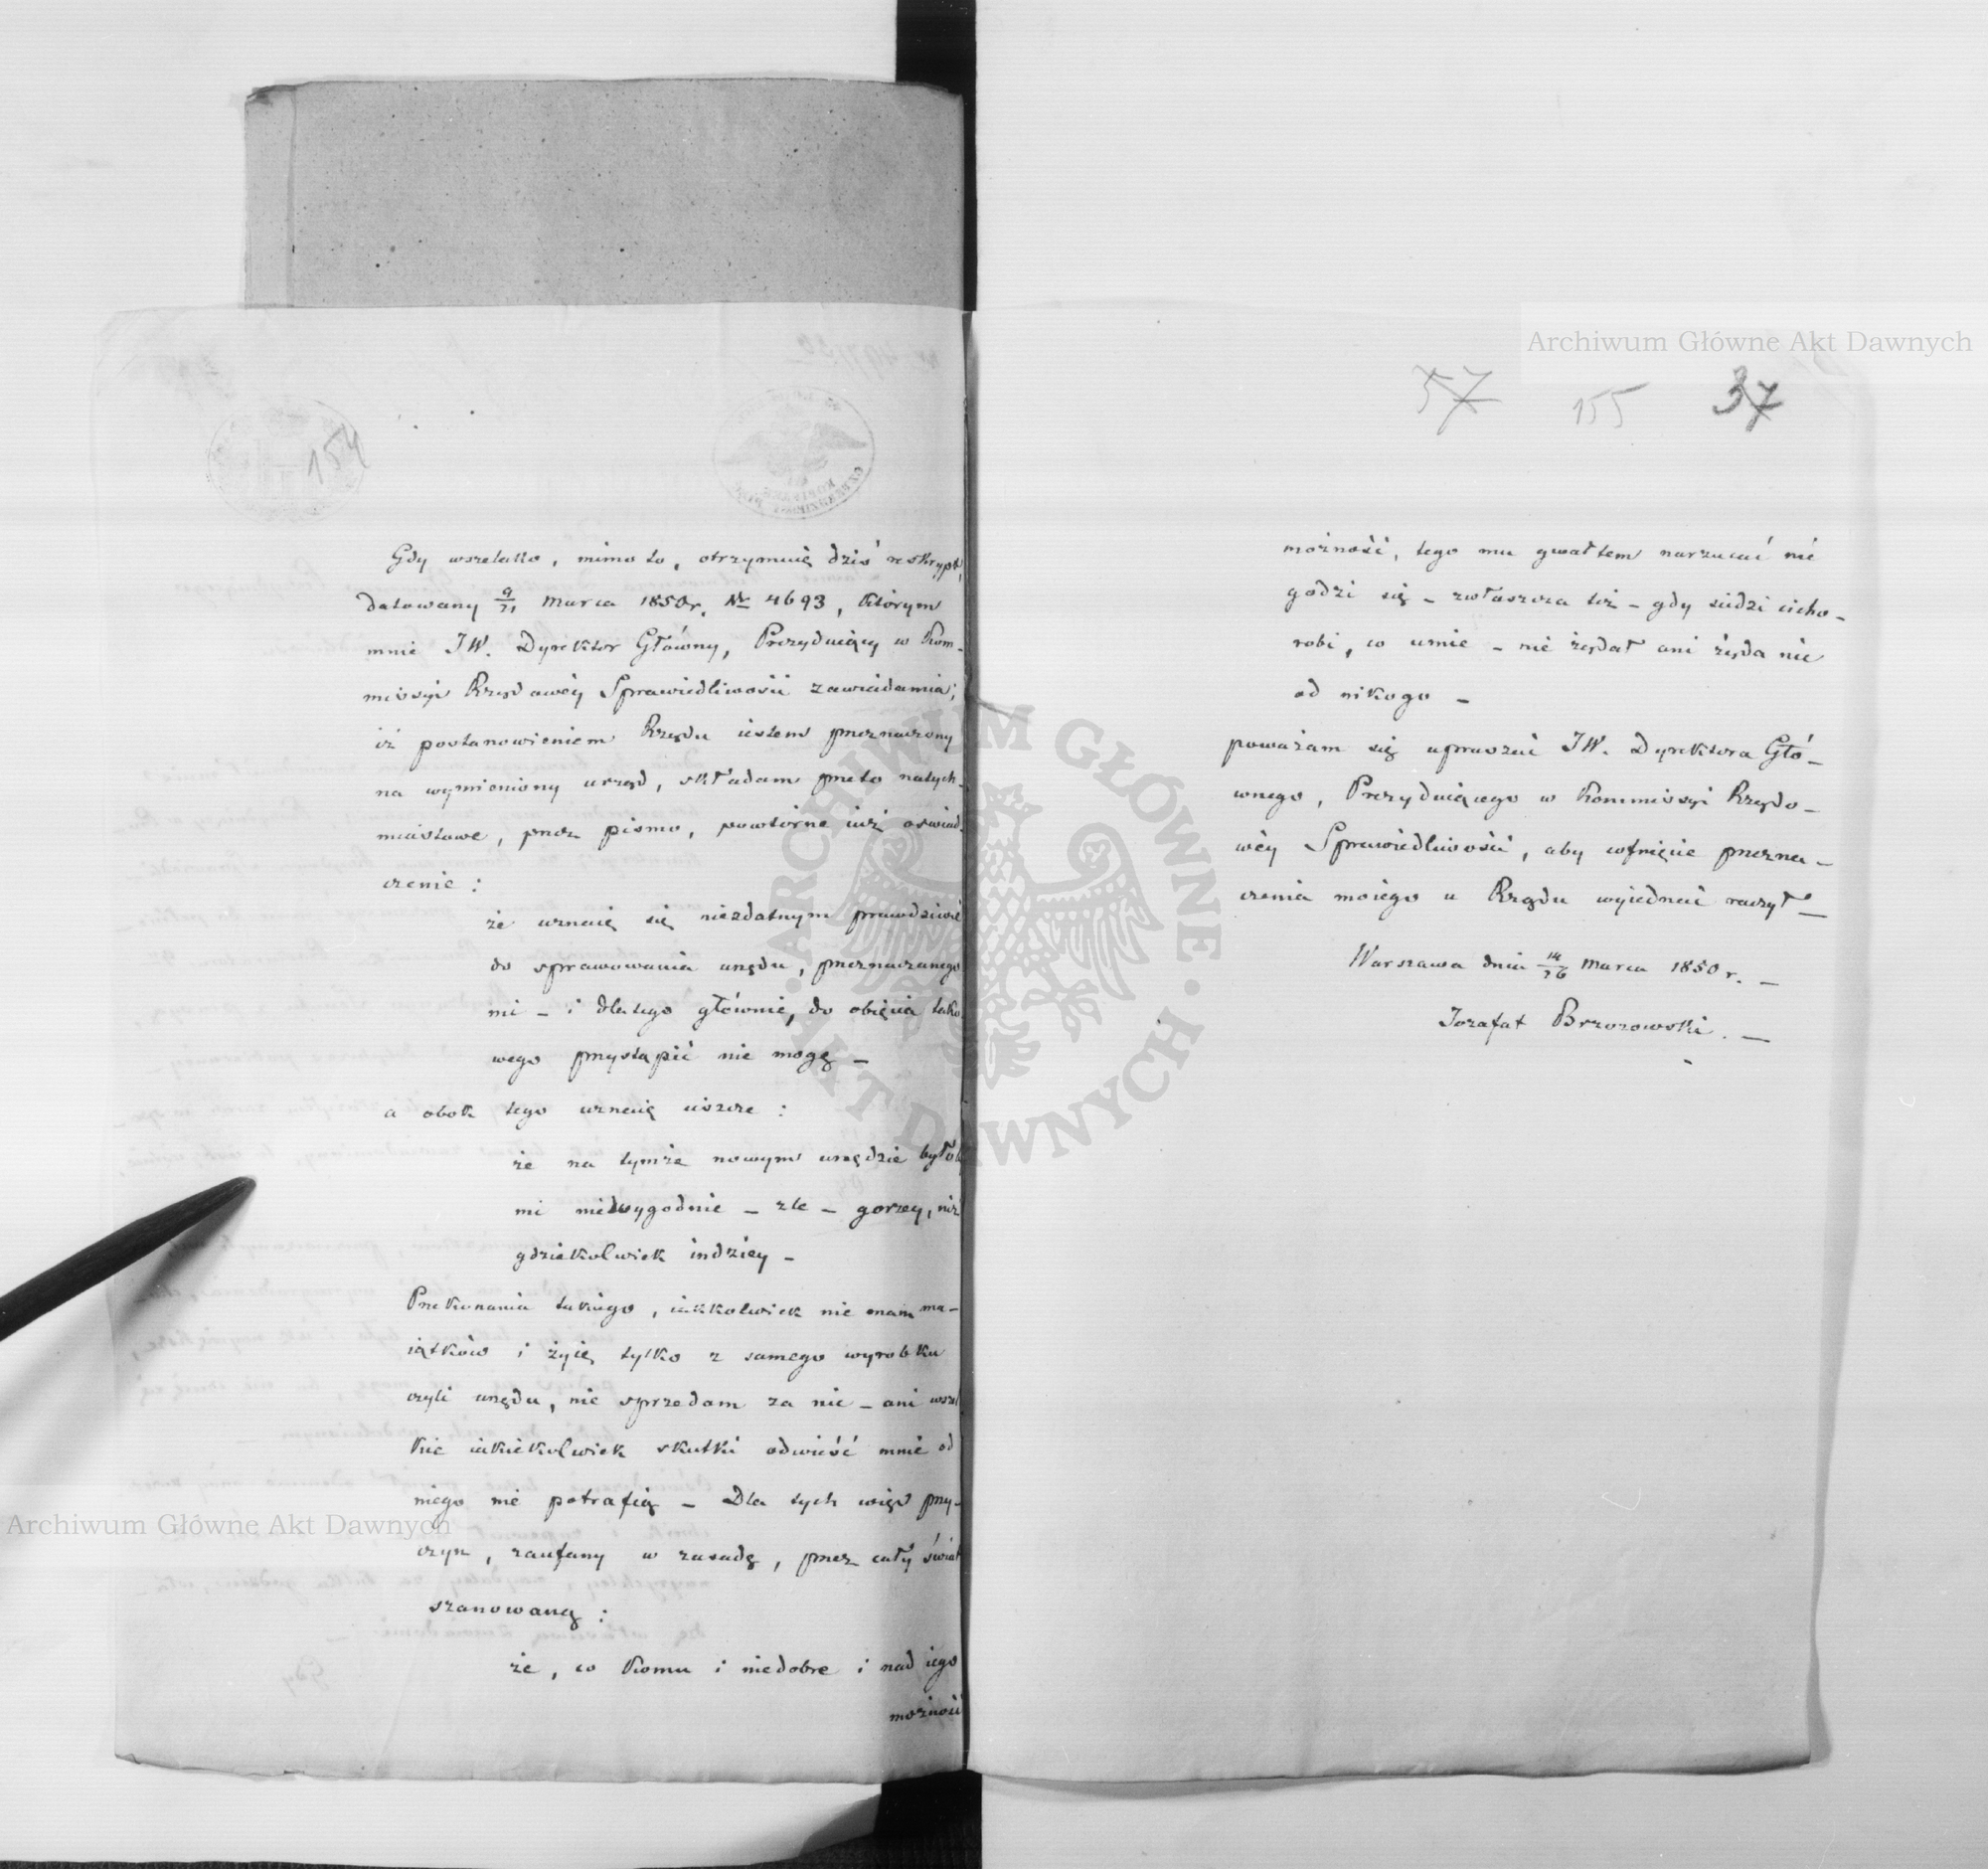 154
Gdy wszelako, mimo to, otrzymuię dziś reskrypt,
datowany 9/21 Marca 1850 r. № 4693, którym
mnie JW. Dyrektor Główny, Prezyduiący w Kom-
missyi Rządowéy Sprawiedliwości zawiadamia;
iż postanowieniem Rządu iestem przeznaczony
na wymieniony urząd, składam przeto natych-
miastowe, przez pismo, powtórne iuż oświad-
czenie:
że uznaię się niezdatnym prawdziwie
do sprawowania urzędu, przeznaczonego
mi – i dlatego głównie, do obięcia tako
wego przystąpić nie mogę –
a obok tego uznaię ieszcze:
że na tymże nowym urzędzie byłob
mi niedogodnie – źle – gorzey, niż
gdziekolwiek indziey –
Przekonania takiego, iakkolwiek nie mam ma-
iątków i żyię tylko z samego wyrobku
czyli urzędu, nie sprzedam za nic – ani wszel
kie iakiekolwiek skutki odwieść mnie od
niego nie potrafią – Dla tych więc przy-
czyn, zaufany w zasadę, przez cały świat
szanowaną:
że, co komu i niedobre i nad iego
możność
57 155 37
możność, tego mu gwałtem narzucać nie
godzi się – zwłaszcza też – gdy siedzi cicho –
robi, co umie – nie żądał ani żąda nic
od nikogo –
poważam się upraszać JW. Dyrektora Głó-
wnego, Prezyduiącego w Kommissyi Rządo-
wéy Sprawiedliwości, aby cofnięcie przezna-
czenia moiego u Rządu wyiednać raczył –
Warszawa dnia 14/26 Marca 1850 r. –
Jozafat Brzozowski. –
Archiwum Główne Akt Dawnych
Archiwum Główne Akt Dawnych
ARCHIWUM GŁÓWNE · AKT DAWNYCH ·